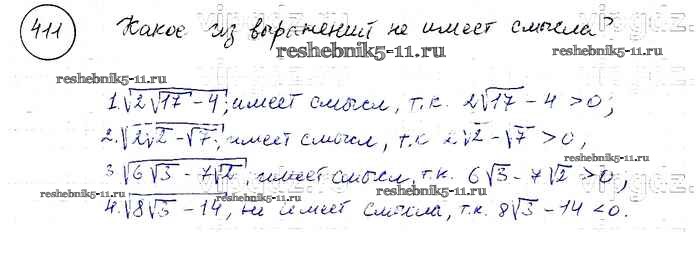 411 Какое из выражений не имеет смысла?
reshebnik5-11.ru
reshebnik5-11.ru reshebnik5-11.ru
1. √(2√17 - 4); имеет смысл, т.к. 2√17 - 4 > 0;
2. √(2√2 - √7); имеет смысл, т.к 2√2 - √7 > 0,
3 √(6√3 - 7√2); имеет смысл, т.к. 6√3 - 7√2 > 0,
reshebnik5-11.ru reshebnik5-11.ru
4. √(8√3 - 14), не имеет смысла, т.к. 8√3 - 14 < 0.